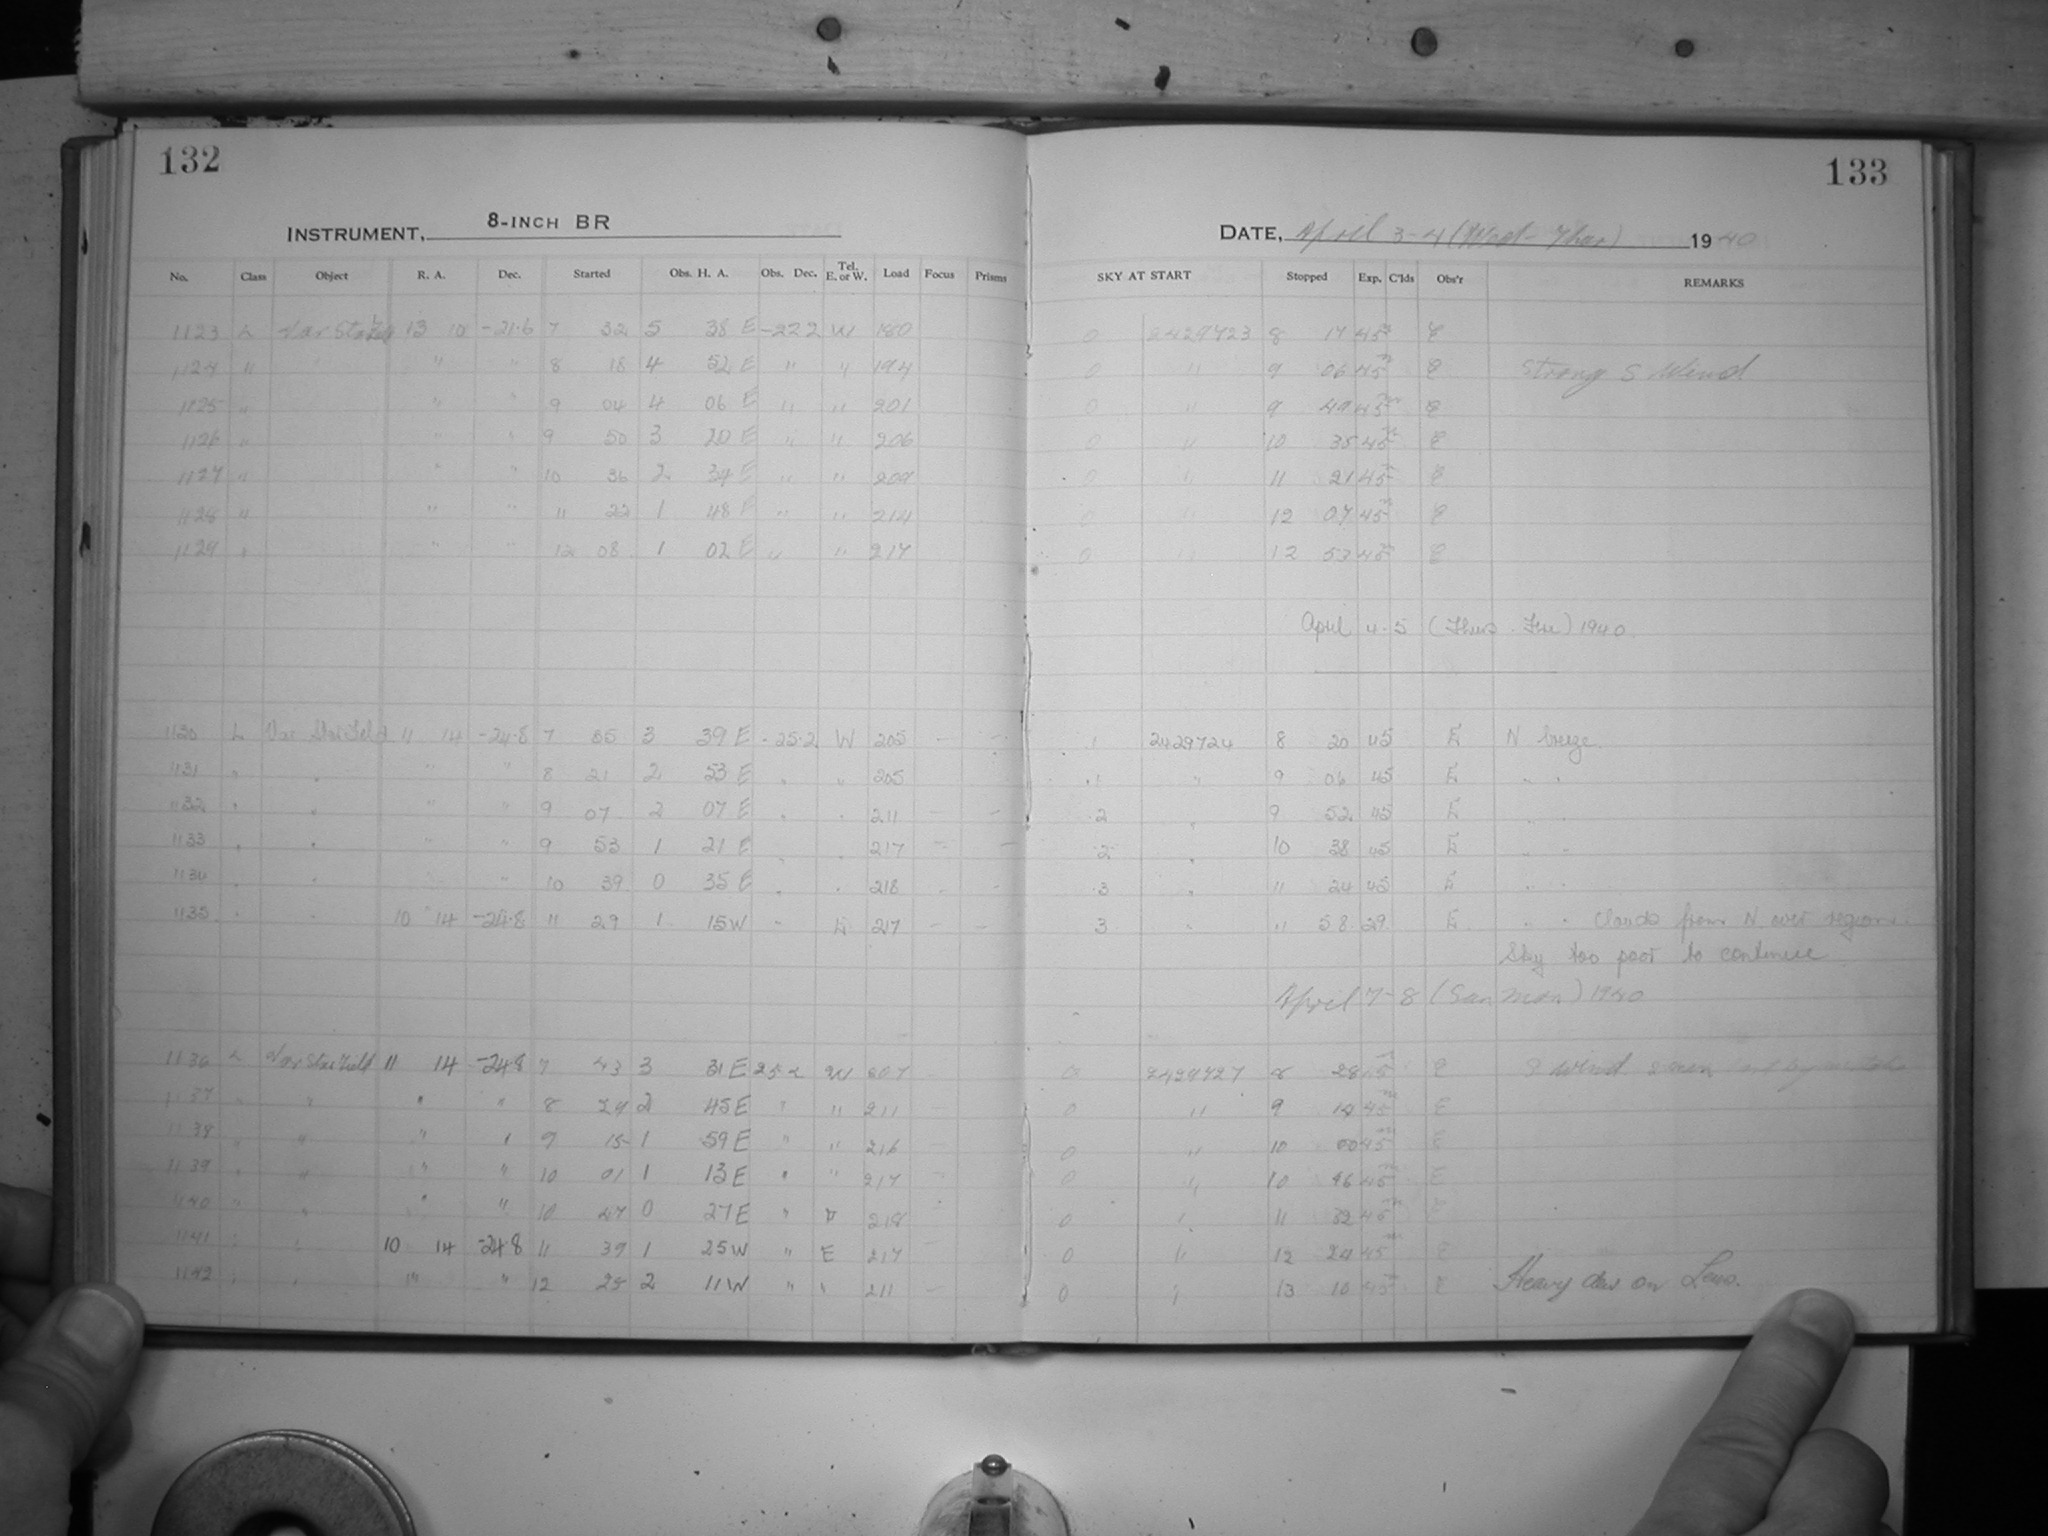 132
133
INSTRUMENT, 8-INCH BR
DATE, April 3-4 (Wed-Thur) 1940
No. Class Object R. A. Dec. Started Obs. H. A. Obs. Dec. Tel. E. or W. Load Focus Prisms SKY AT START Stopped Exp. C'lds Obs'r REMARKS
1123 L 13 10 -21.6 7 32 5 38 E -22.2 W 180 0 2429723 8 17 45m E
1124 " " " 8 18 4 52 E " " 194 0 " 9 45m E Strong S Wind
1125 " " " 9 04 4 06 E " " 201 0 " 9 49 45m E
1126 " " " 9 50 3 20 E " " 206 0 " 10 35 45m E
1127 " " " 10 36 2 34 E " " 209 0 " 11 21 45m E
1128 " " " 11 22 1 48 E " " 214 0 " 12 07 45m E
1129 " " " 12 08 1 02 E " " 217 0 " 12 53 45m E
April 4-5 (Thurs-Fri) 1940
1130 L Var Star Field 11 14 -24.8 7 35 3 39 E -25.2 W 205 - - 1 2429724 8 20 45 E N breeze
1131 " " " " 8 21 2 53 E " " 205 1 " 9 06 45 E " "
1132 " " " " 9 07 2 07 E " " 211 - - 2 " 9 52 45 E " "
1133 " " " " 9 53 1 21 E " " 217 - - 2 " 10 38 45 E " "
1134 " " " " 10 39 0 35 E " " 218 - - 3 " 11 24 45 E " "
1135 " " 10 14 -24.8 11 29 1 15 W " E 217 - - 3 " 11 58 29 E " " Clouds from N over region.
Sky too poor to continue
April 7-8 (Sun Mon) 1940
1136 L Var Star Field 11 14 -24.8 7 43 3 31 E 25.2 W 207 - 0 2429727 8 28 45m E wind
1137 " " " " 8 29 2 45 E " " 211 - 0 " 9 14 45m E
1138 " " " " 9 15 1 59 E " " 216 - 0 " 10 00 45m E
1139 " " " " 10 01 1 13 E " " 217 - 0 " 10 46 45m E
1140 " " " " 10 47 0 27 E " " 218 - 0 " 11 32 45m E
1141 " " 10 14 -24.8 11 39 1 25 W " E 217 - 0 " 12 24 45m E
1142 " " " " 12 25 2 11 W " " 211 - 0 " 13 10 45m E Heavy dew on Lens.